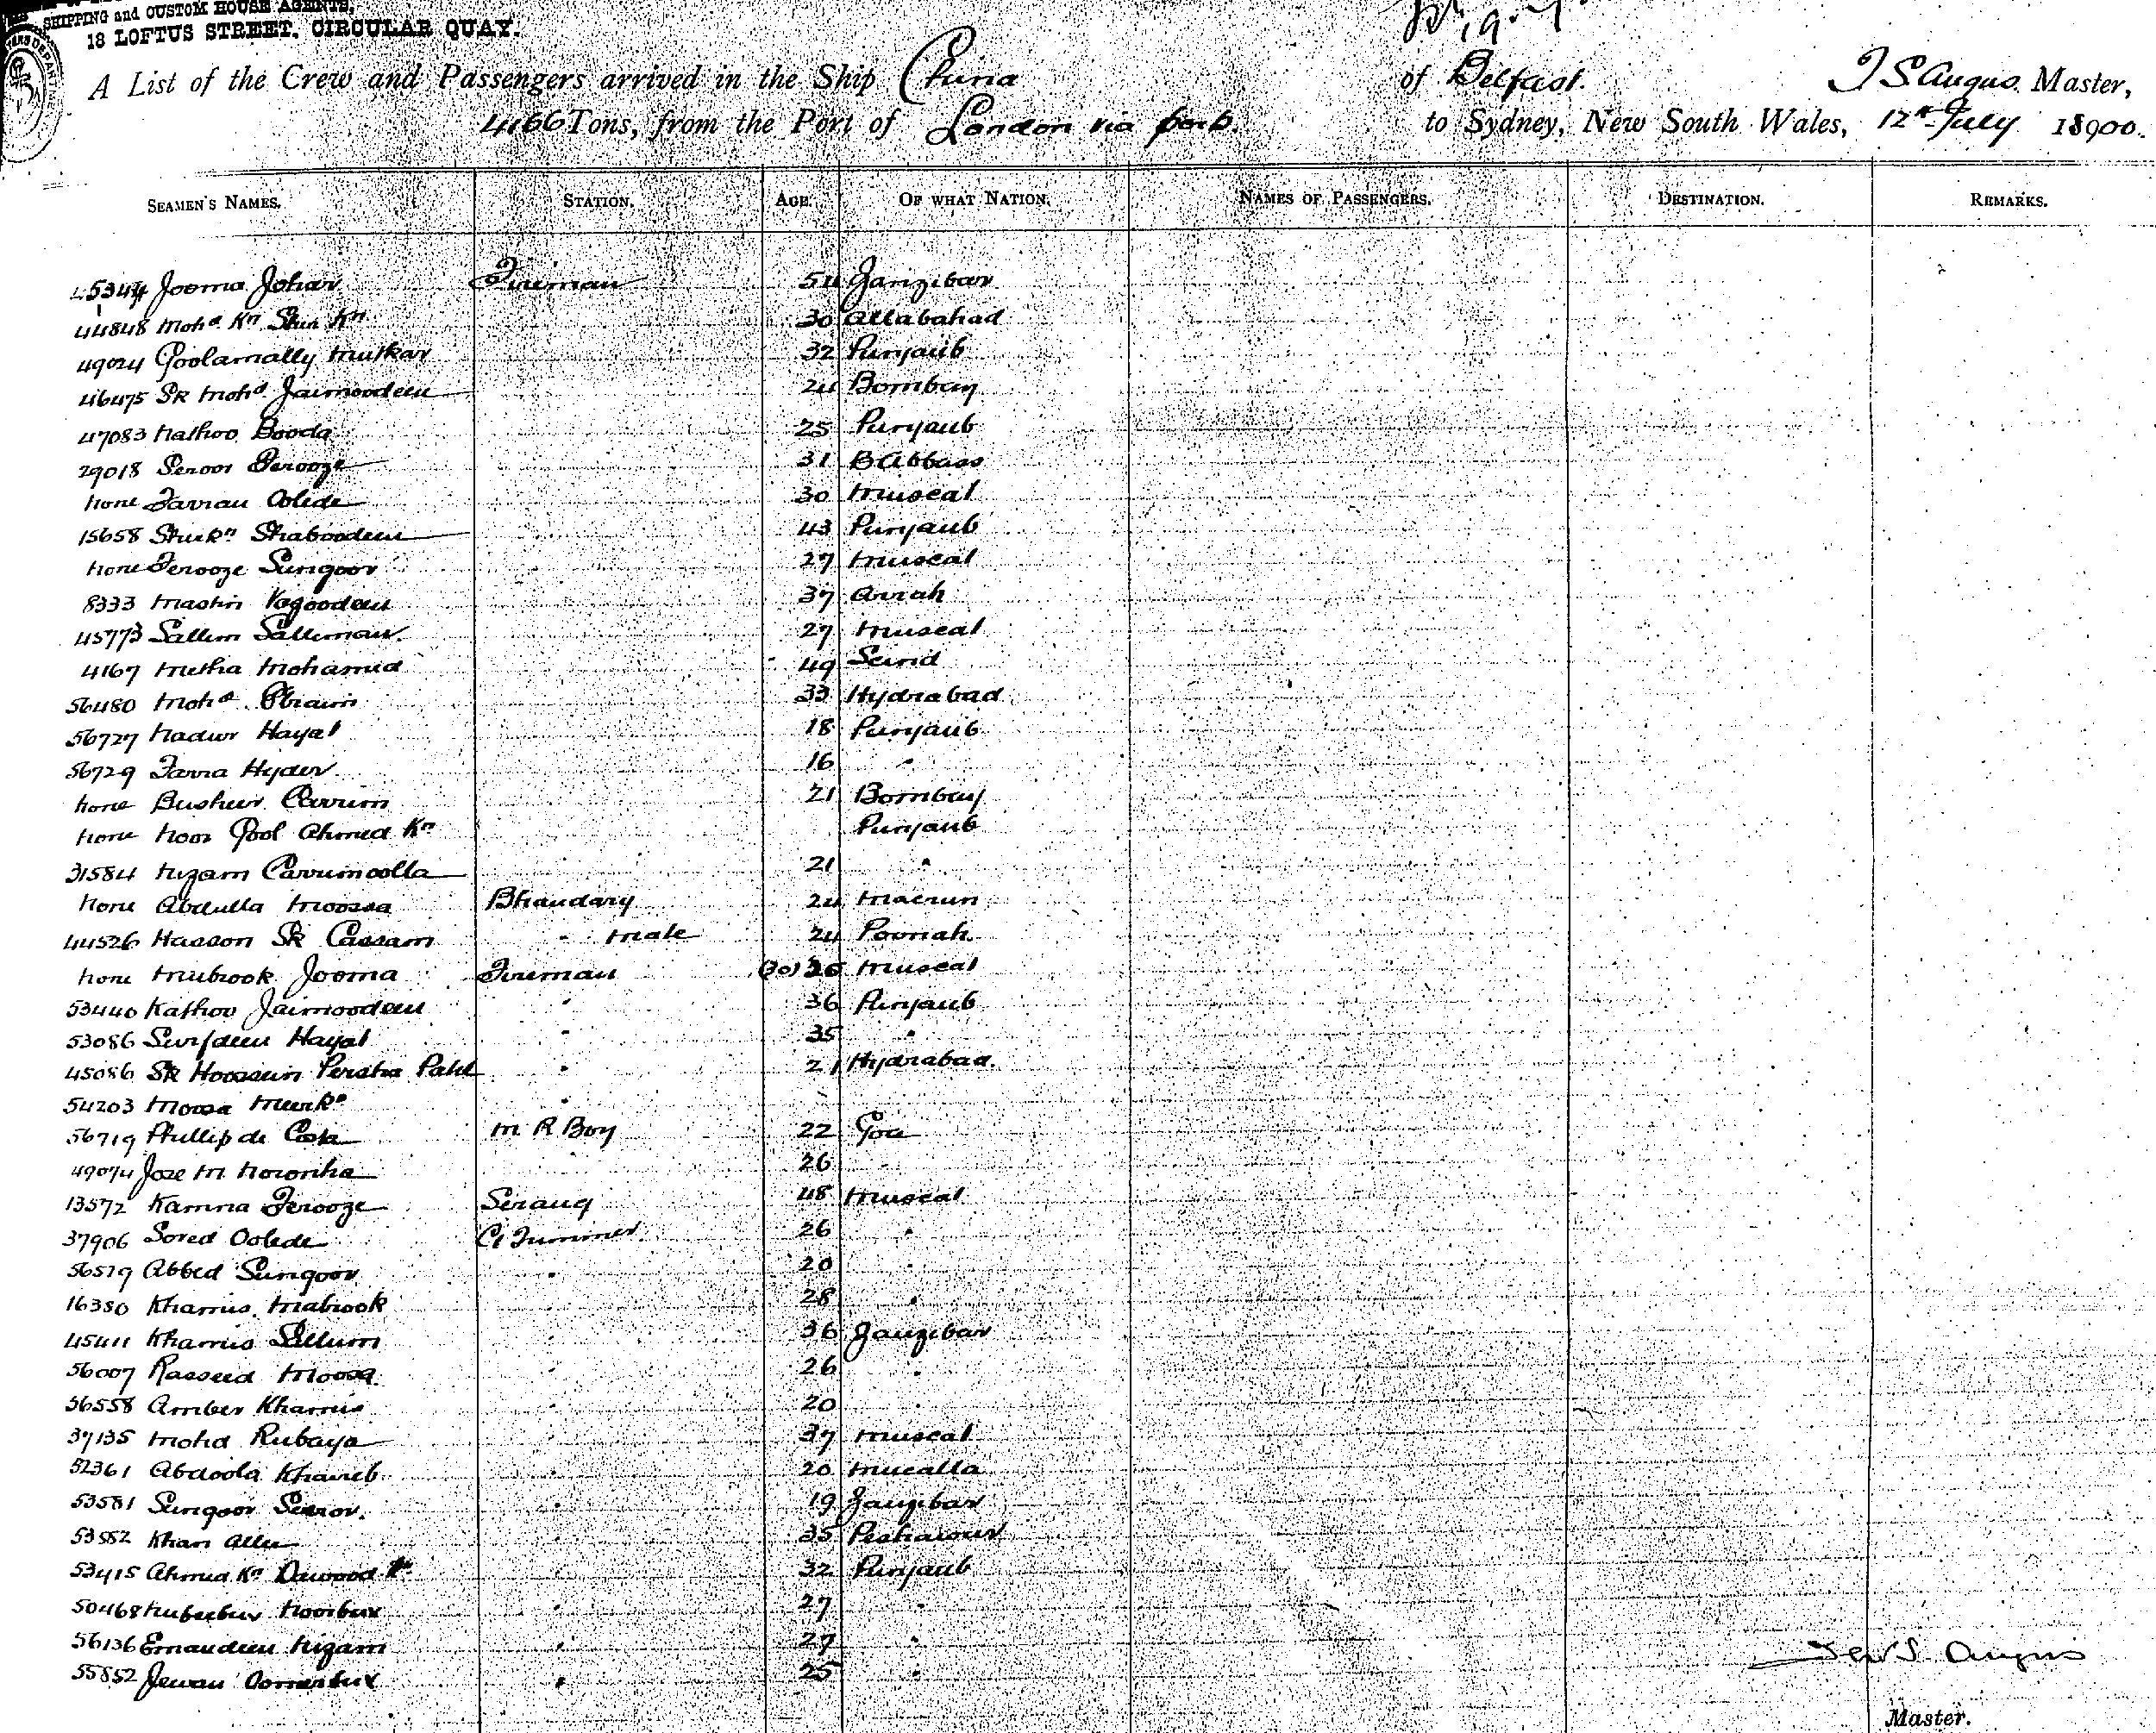 SHIPPING and CUSTOM HOUSE AGENTS,
18 LOFTUS STREET, CIRCULAR QUAY.
A List of the Crew and Passengers arrived in the Ship China of Belfast. Angus Master,
4166 Tons, from the Port of London via ports to Sydney, New South Wales, 12th July 18900.
SEAMEN'S NAMES. STATION. AGE. OF WHAT NATION. NAMES OF PASSENGERS. DESTINATION. REMARKS.
45344 Jooma Johar Fireman 54 Zanzibar
44848 Mohd Kn Sher Kn 30 Allabahad
49024 Goolamally Mutkar 32 Punjaub
46475 Sk Mohd Jainoodeen 24 Bombay
47083 Nathoo Booda 25 Punjaub
29018 Seroor Ferooze 31 B Abbass
None Farrau Oolede 30 Muscat
15658 Sherkn Shaboodeen 43 Punjaub
None Ferooze Sungoor 27 Muscat
8333 Vagoodeen 37 Arrah
45773 Sallim Sallimau 27 Muscat
4167 Metha Mohamid 49 Scind
56480 Mohd Ebraim 33 Hydrabad
56727 Hayat 18 Punjaub
56729 Farra Hyder 16 "
None Busheer Carrim 21 Bombay
None Noor Gool Ahmed Kn Punjaub
31584 Nizam Carrimoolla 21 "
None Abdulla Moossa Bhandary 24
44526 Hasson Sk Cassam " Mate 24 Poonah
None Mubrook Jooma Fireman (30) 36 Muscat
53440 Kathoo Jainoodeen " 36 Punjaub
53086 Hayat " 35 "
45086 Sk Hoossein Patel " 21 Hydrabad
54203 Moosa Meerkn "
56719 Phillip de Costa M R Boy 22 Goa
49074 Jose M Noronha 26
13572 Kamna Ferooze Serang 48 Muscat
37906 Soved Oolede C Trimmer 26 "
56579 Abbed Sungoor " 20 "
16380 Khamis Mabrook " 28 "
45411 Khamis Sellum " 36 Zanzibar
56007 Rasseed Moosa " 26 "
56558 Amber Khamis " 20 "
37135 Mohd Rubaya " 37 Muscat
52361 Abdoola Khaireb " 20 Mucalla
53581 Sungoor Seeroor " 19 Zanzibar
53552 Khan Allee " 35 Peshawur
53415 Ahmed Kn Dawood Kn " 32 Punjaub
50468 Nubeebux Noorbux " 27 "
56136 Emaudeen Nizam " 27 "
55852 Jewan Oomerbux " 25 "
Angus
Master.